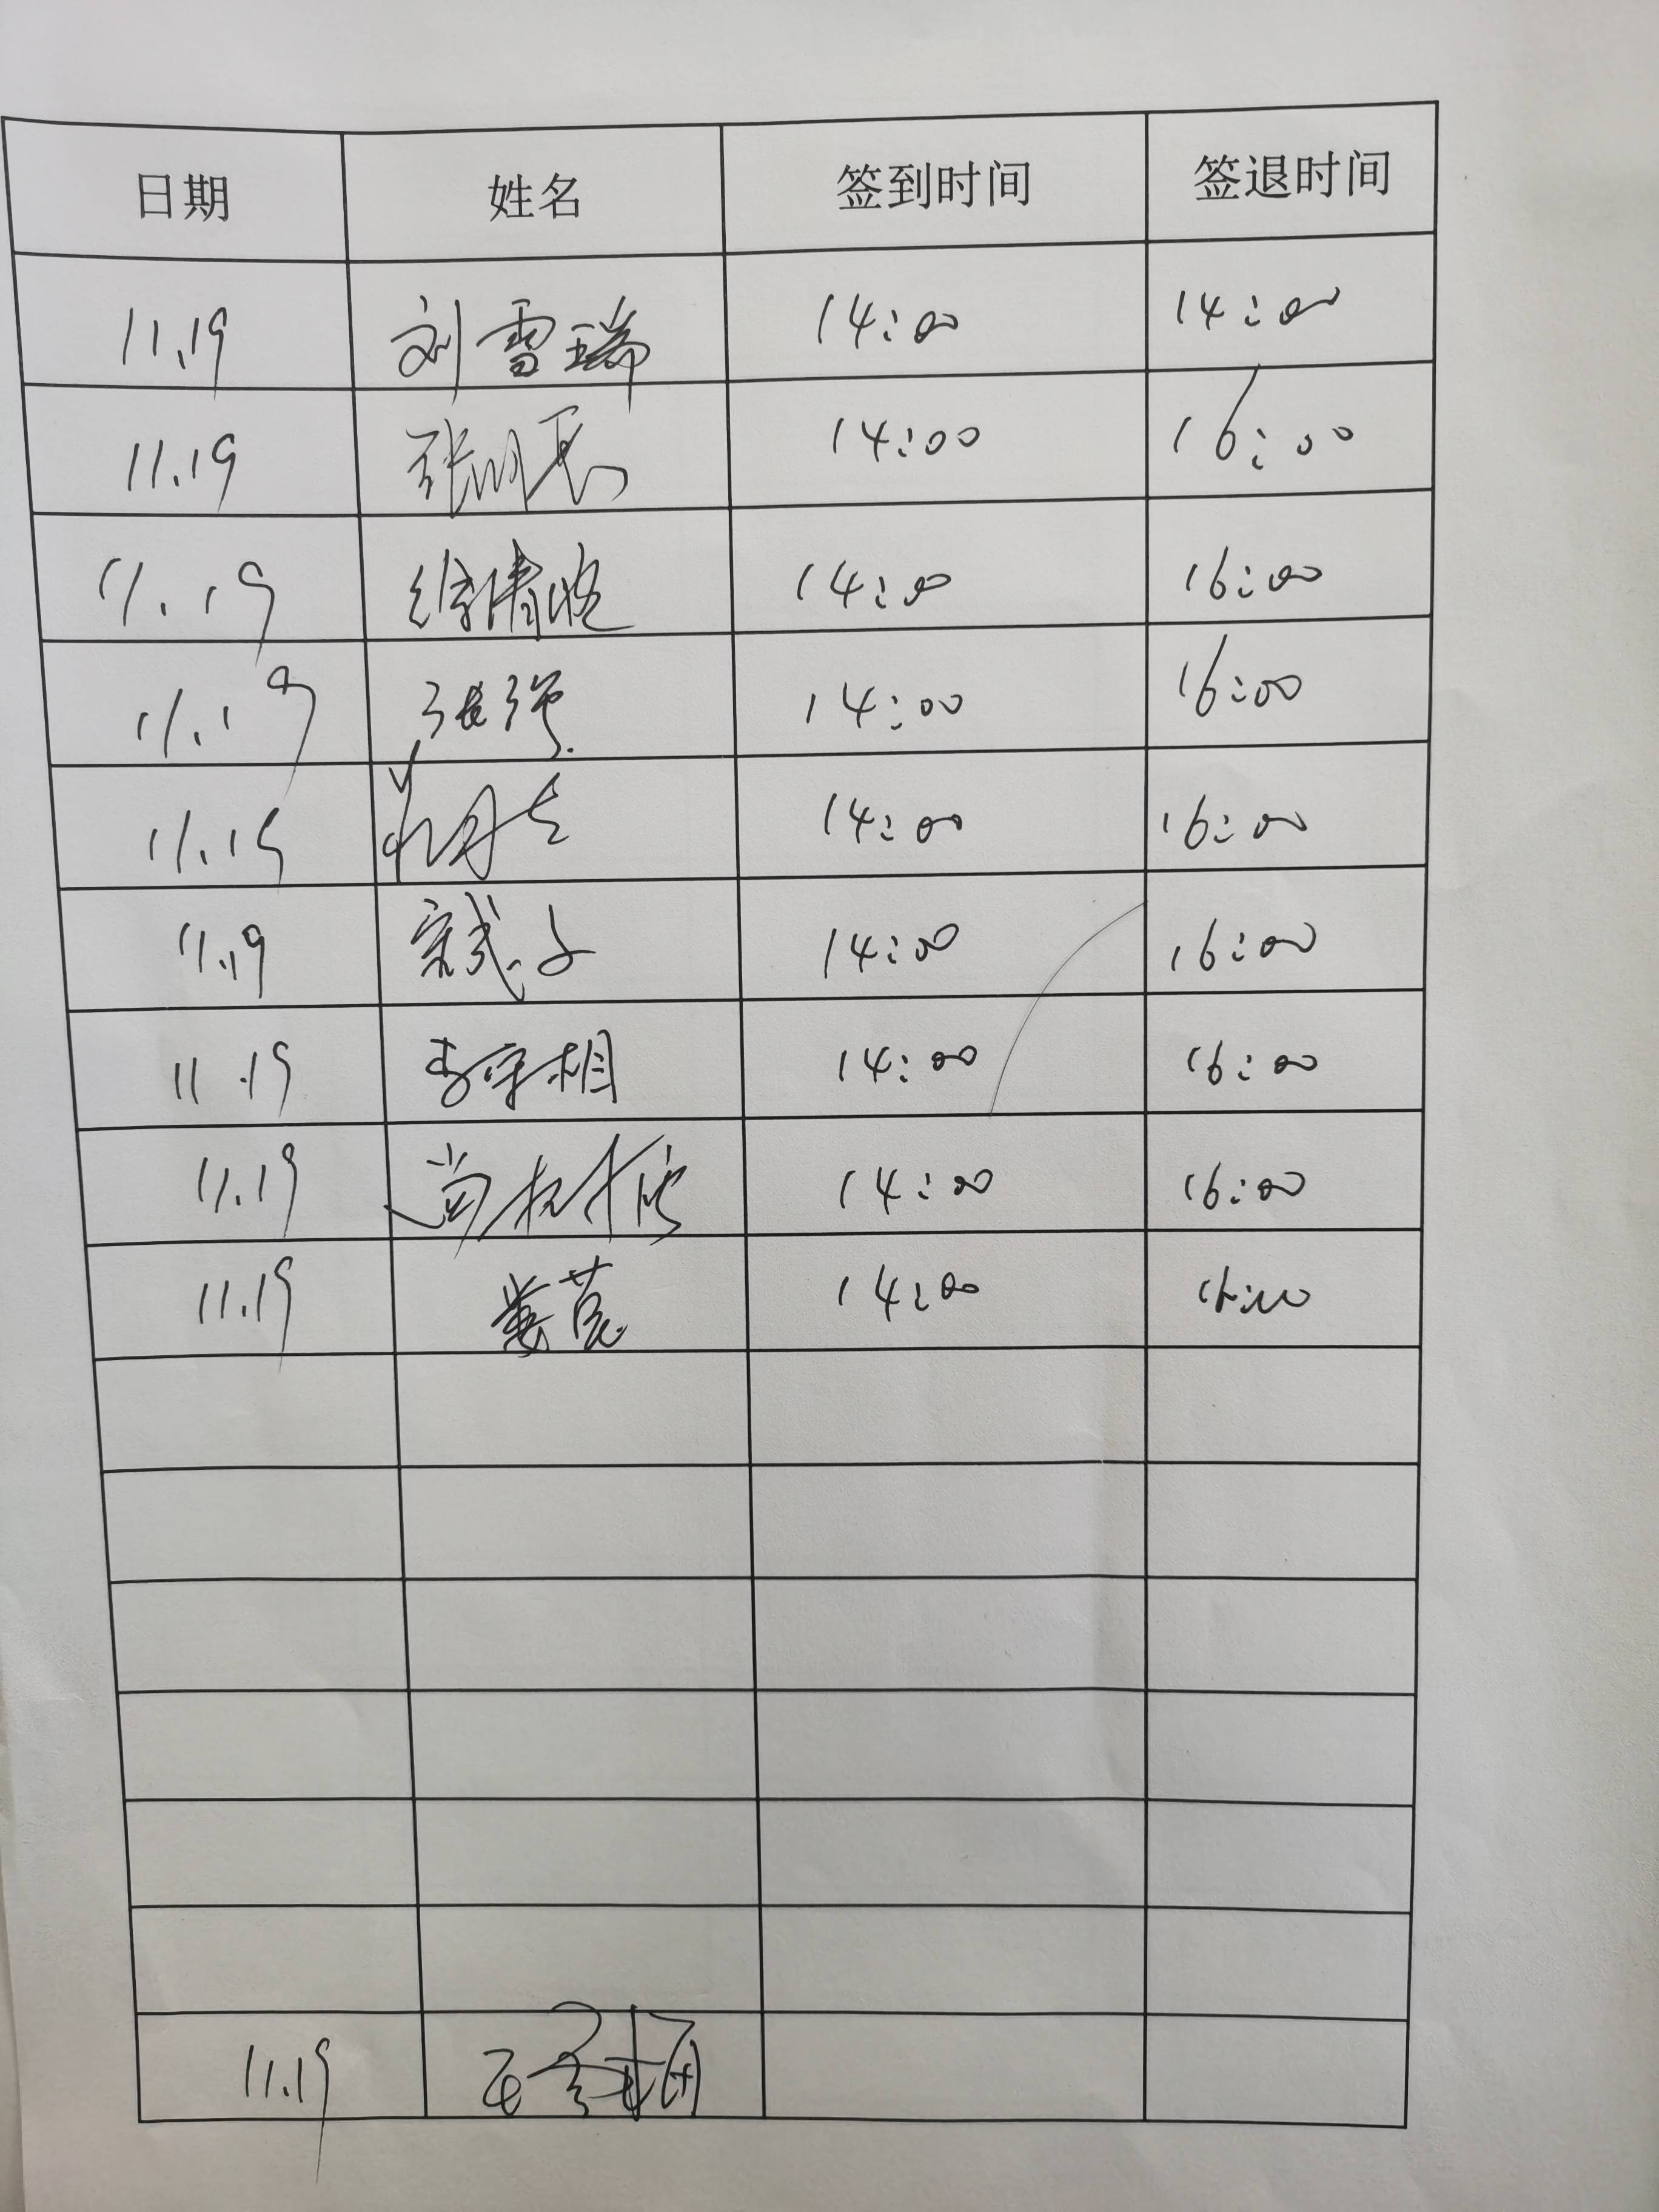 日期 姓名 签到时间 签退时间
11.19 刘雪瑞 14:00 14:00
11.19 张 14:00 16:00
11.19 徐清 14:00 16:00
11.19 张强 14:00 16:00
11.19 14:00 16:00
11.19 14:00 16:00
11.19 李宇相 14:00 16:00
11.19 14:00 16:00
11.19 14:00 16:00
11.19